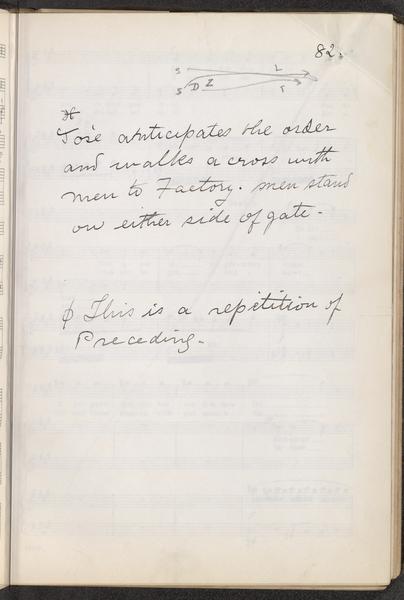 82.
S L
S D Z S
José anticipates the order
and walks across with
men to Factory. men stand
on either side of gate.
φ This is a repetition of
Preceding.